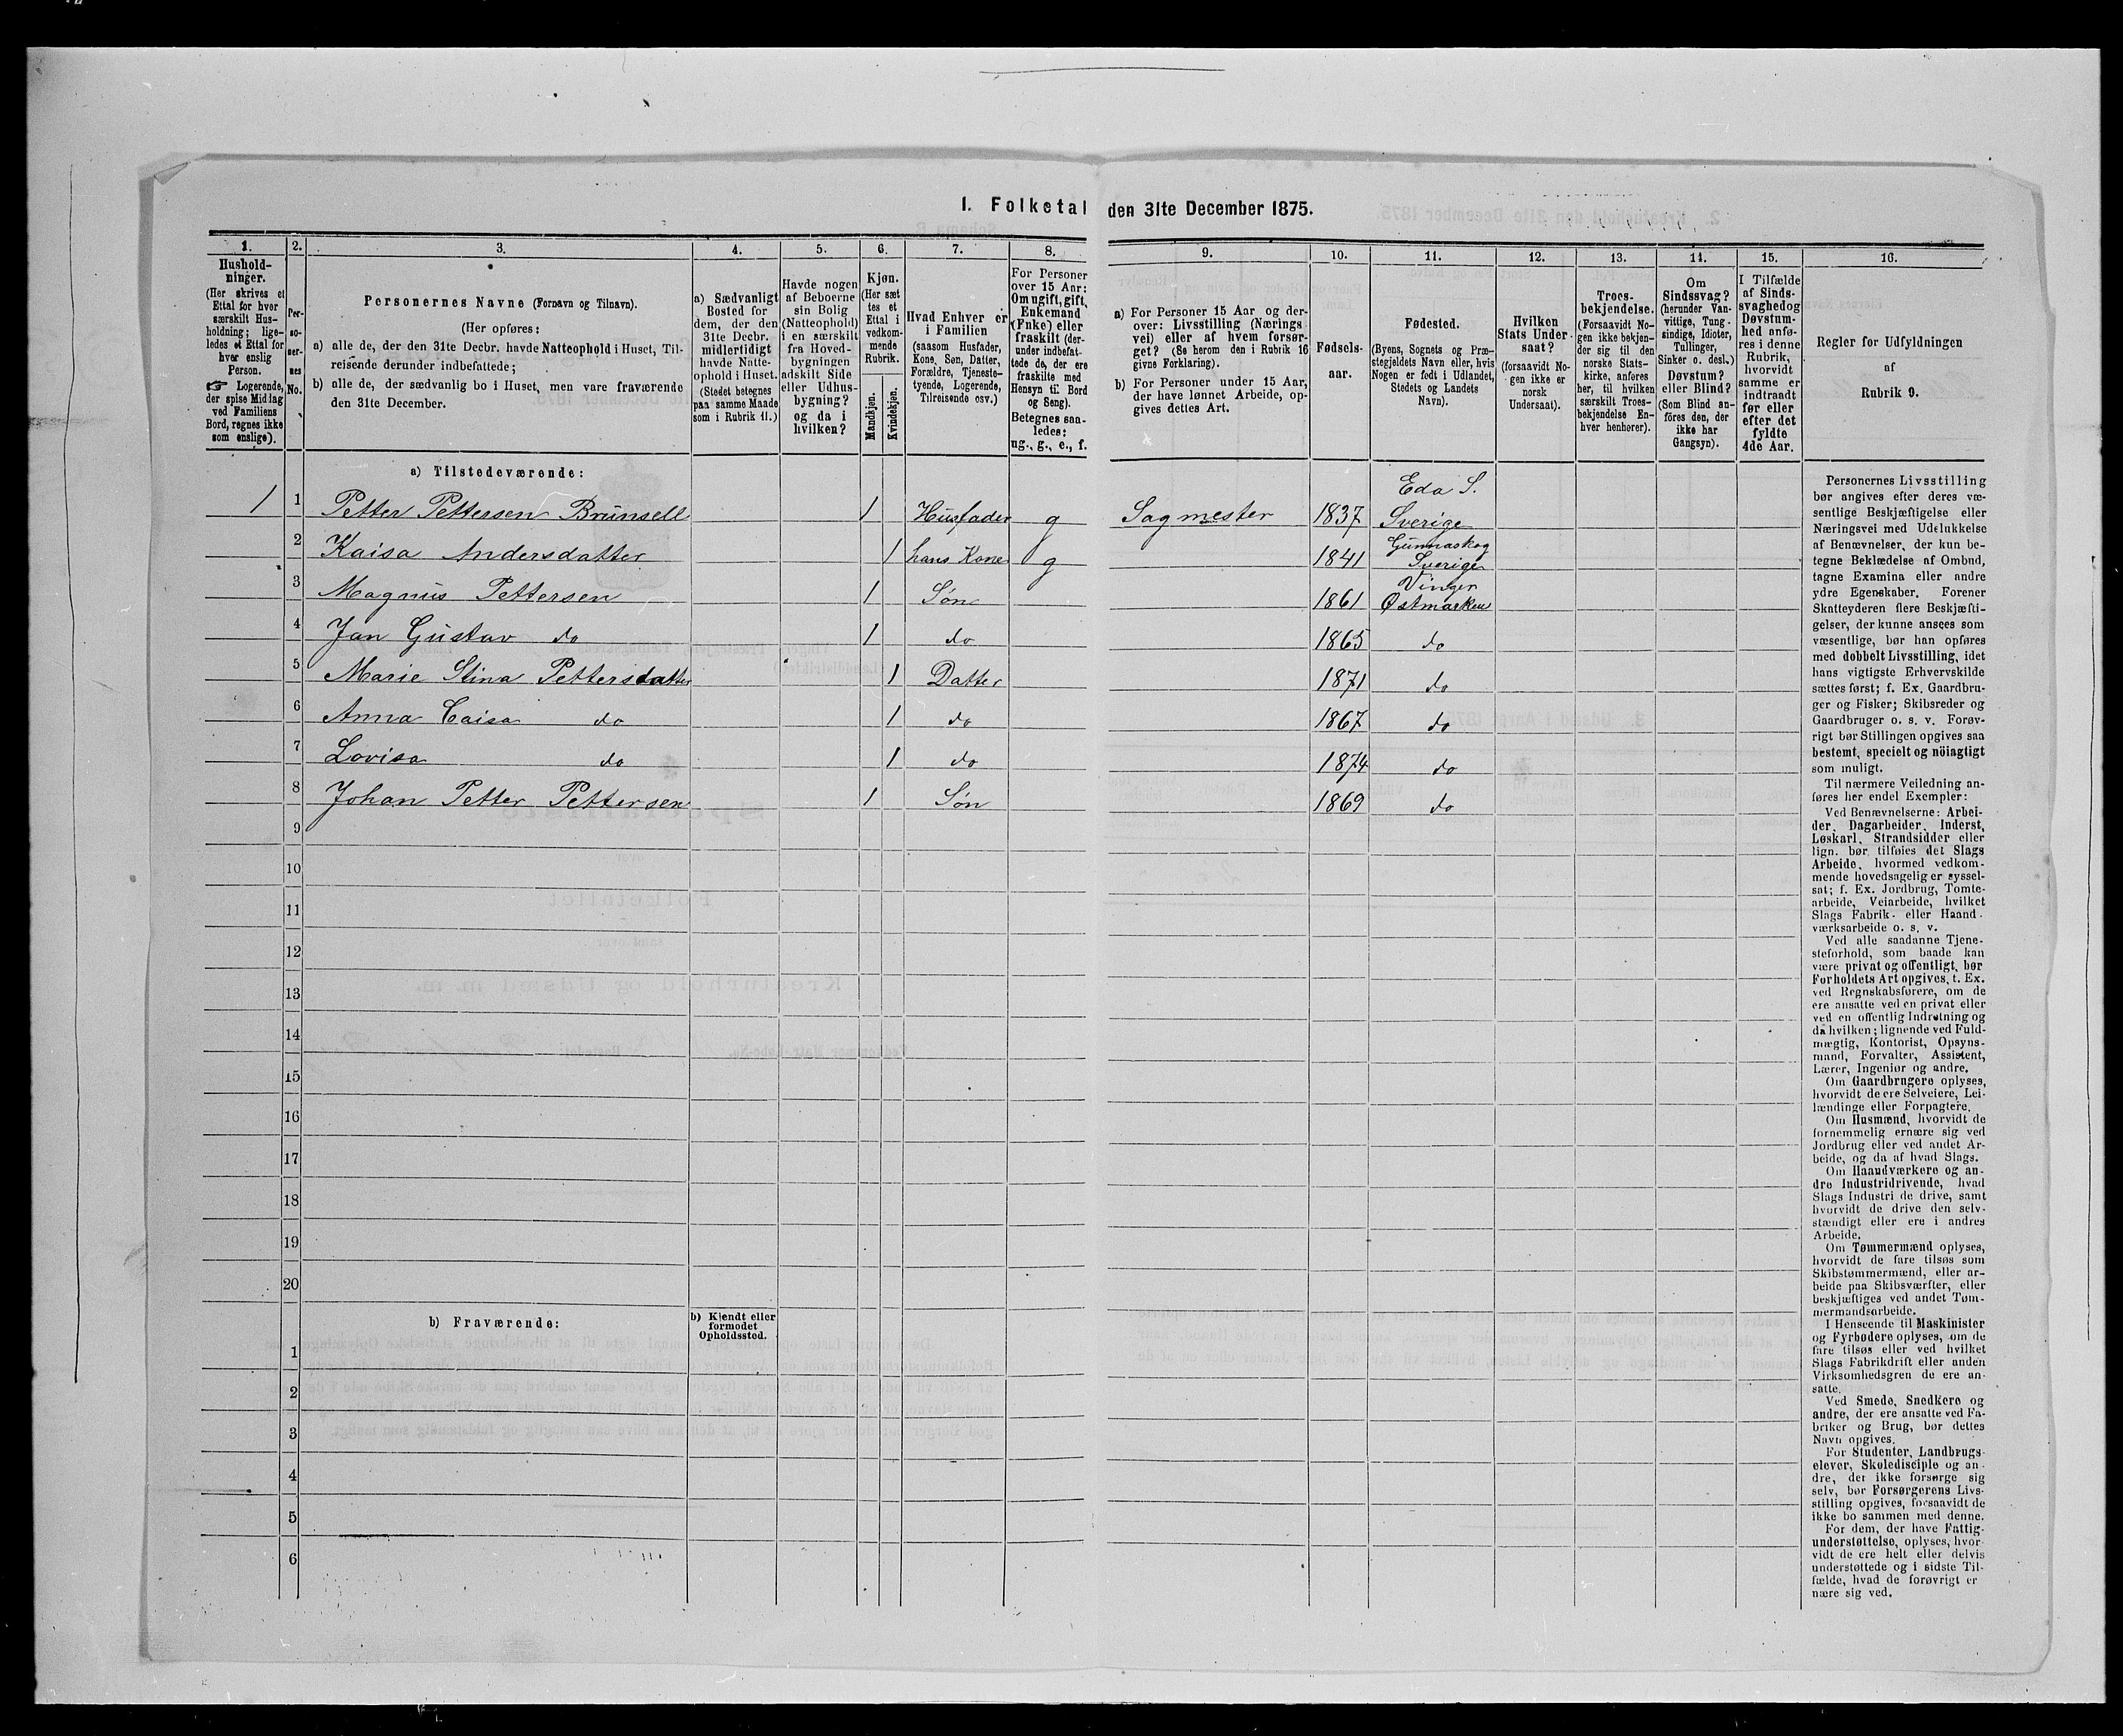 1. Folketal den 31te December 1875.
1. 2. 3. 4. 5. 6. 7. 8. 9. 10. 11. 12. 13. 14. 15. 16.
Hushold-
ninger.
(Her skrives et
Ettal for hver
særskilt Hus-
holdning; lige-
ledes et Ettal for
hver enslig
Person.
☞ Logerende,
der spise Middag
ved Familiens
Bord, regnes ikke
som enslige).
Per-
so-
ner-
nes
No.
Personernes Navne (Fornavn og Tilnavn).
(Her opføres:
a) alle de, der den 31te Decbr. havde Natteophold i Huset, Til-
reisende derunder indbefattede;
b) alle de, der sædvanlig bo i Huset, men vare fraværende
den 31te December.
a) Sædvanligt
Bosted for
dem, der den
31te Decbr.
midlertidigt
havde Natte-
ophold i Huset.
(Stedet betegnes
paa samme Maade
som i Rubrik 11.)
Havde nogen
af Beboerne
sin Bolig
(Natteophold)
i en særskilt
fra Hoved-
bygningen
adskilt Side
eller Udhus-
bygning?
og da i
hvilken?
Kjøn.
(Her sæt
tes et
Ettal i
vedkom-
mende
Rubrik.
Mandkjøn.
Kvindekjøn.
Hvad Enhver er
i Familien
(saasom Husfader,
Kone, Søn, Datter,
Forældre, Tjeneste-
tyende, Logerende,
Tilreisende osv.)
For Personer
over 15 Aar:
Om ugift, gift,
Enkemand
(Enke) eller
fraskilt (der-
under indbefat-
tede de, der ere
fraskilte med
Hensyn til Bord
og Seng).
Betegnes saa-
ledes:
ug., g., e., f.
a) For Personer 15 Aar og der-
over: Livsstilling (Nærings
vei) eller af hvem forsør-
get? (Se herom den i Rubrik 16
givne Forklaring).
b) For Personer under 15 Aar,
der have lønnet Arbeide, op-
gives dettes Art.
Fødsels-
aar.
Fødested.
(Byens, Sognets og Præ-
stegjeldets Navn eller, hvis
Nogen er født i Udlandet,
Stedets og Landets
Navn).
Hvilken
Stats Under-
saat?
(forsaavidt No-
gen ikke er
norsk
Undersaat).
Troes-
bekjendelse.
(Forsaavidt No-
gen ikke bekjen-
der sig til den
norske Stats-
kirke, anføres
her, til hvilken
særskilt Troes-
bekjendelse En-
hver henhører).
Om
Sindssvag?
(herunder Van-
vittige, Tung-
sindige, Idioter,
Tullinger,
Sinker o. desl.)
Døvstum?
eller Blind?
(Som Blind an-
føres den, der
ikke har
Gangsyn).
I Tilfælde
af Sinds-
svaghed og
Døvstum-
hed anfø-
res i denne
Rubrik,
hvorvidt
samme er
indtraadt
før eller
efter det
fyldte
4de Aar.
Regler for Udfyldningen
af
Rubrik 9.
a) Tilstedeværende:
Eda S.
1 1 Petter Pettersen Brunsell 1 Husfader g Sagmester 1837 Sverige
Gunnaskog
2 Kaisa Andersdatter 1 hans Kone g 1841 Sverige
Vinger
3 Magnus Pettersen 1 Søn 1861 Østmarken
4 Jan Gustav do 1 do 1865 do
5 Marie Stina Pettersdatter 1 Datter 1871 do
6 Anna Caisa do 1 do 1867 do
7 Lovisa do 1 do 1874 do
8 Johan Petter Pettersen 1 Søn 1869 do
9
10
11
12
13
14
15
16
17
18
19
20
b) Fraværende:
b) Kjendt eller
formodet
Opholdssted.
1
2
3
4
5
6
Personernes Livsstilling
bør angives efter deres væ-
sentlige Beskjæftigelse eller
Næringsvei med Udelukkelse
af Benævnelser, der kun be-
tegne Beklædelse af Ombud,
tagne Examina eller andre
ydre Egenskaber. Forener
Skatteyderen flere Beskjæfti-
gelser, der kunne ansees som
væsentlige, bør han opføres
med dobbelt Livsstilling, idet
hans vigtigste Erhvervskilde
sættes først; f. Ex. Gaardbru-
ger og Fisker; Skibsreder og
Gaardbruger o. s. v. Forøv-
rigt bør Stillingen opgives saa
bestemt, specielt og nöiagtigt
som muligt.
Til nærmere Veiledning an-
føres her endel Exempler:
Ved Benævnelserne: Arbei-
der, Dagarbeider, Inderst,
Løskarl, Strandsidder eller
lign. bør tilføies det Slags
Arbeide, hvormed vedkom-
mende hovedsagelig er syssel-
sat; f. Ex. Jordbrug, Tomte-
arbeide, Veiarbeide, hvilket
Slags Fabrik- eller Haand-
værksarbeide o. s. v.
Ved alle saadanne Tjene-
steforhold, som baade kan
være privat og offentligt, bør
Forholdets Art opgives, t. Ex.
ved Regnskabsførere, om de
ere ansatte ved en privat eller
ved en offentlig Indretning og
da hvilken; lignende ved Fuld-
mægtig, Kontorist, Opsyns-
mand, Forvalter, Assistent,
Lærer, Ingeniør og andre.
Om Gaardbrugere oplyses,
hvorvidt de ere Selveiere, Lei-
lændinge eller Forpagtere.
Om Husmænd, hvorvidt de
fornemmelig ernære sig ved
Jordbrug eller ved andet Ar-
beide, og da af hvad Slags.
Om Haandværkere og an-
dre Industridrivende, hvad
Slags Industri de drive, samt
hvorvidt de drive den selv-
stændigt eller ere i andres
Arbeide.
Om Tømmermænd oplyses,
hvorvidt de fare tilsøs som
Skibstømmermænd, eller ar-
beide paa Skibsværfter, eller
beskjæftiges ved andet Tøm-
mermandsarbeide.
I Henseende til Maskinister
og Fyrbødere oplyses, om de
fare tilsøs eller ved hvilket
Slags Fabrikdrift eller anden
Virksomhedsgren de ere an-
satte.
Ved Smede, Snedkere og
andre, der ere ansatte ved Fa-
briker og Brug, bør dettes
Navn opgives.
For Studenter, Landbrugs-
elever, Skoledisciple og an-
dre, der ikke forsørge sig
selv, bør Forsørgerens Livs-
stilling opgives, forsaavidt de
ikke bo sammen med denne.
For dem, der have Fattig-
understøttelse, oplyses, hvor-
vidt de ere helt eller delvis
understøttede og i sidste Til-
fælde, hvad de forøvrigt er
nære sig ved.